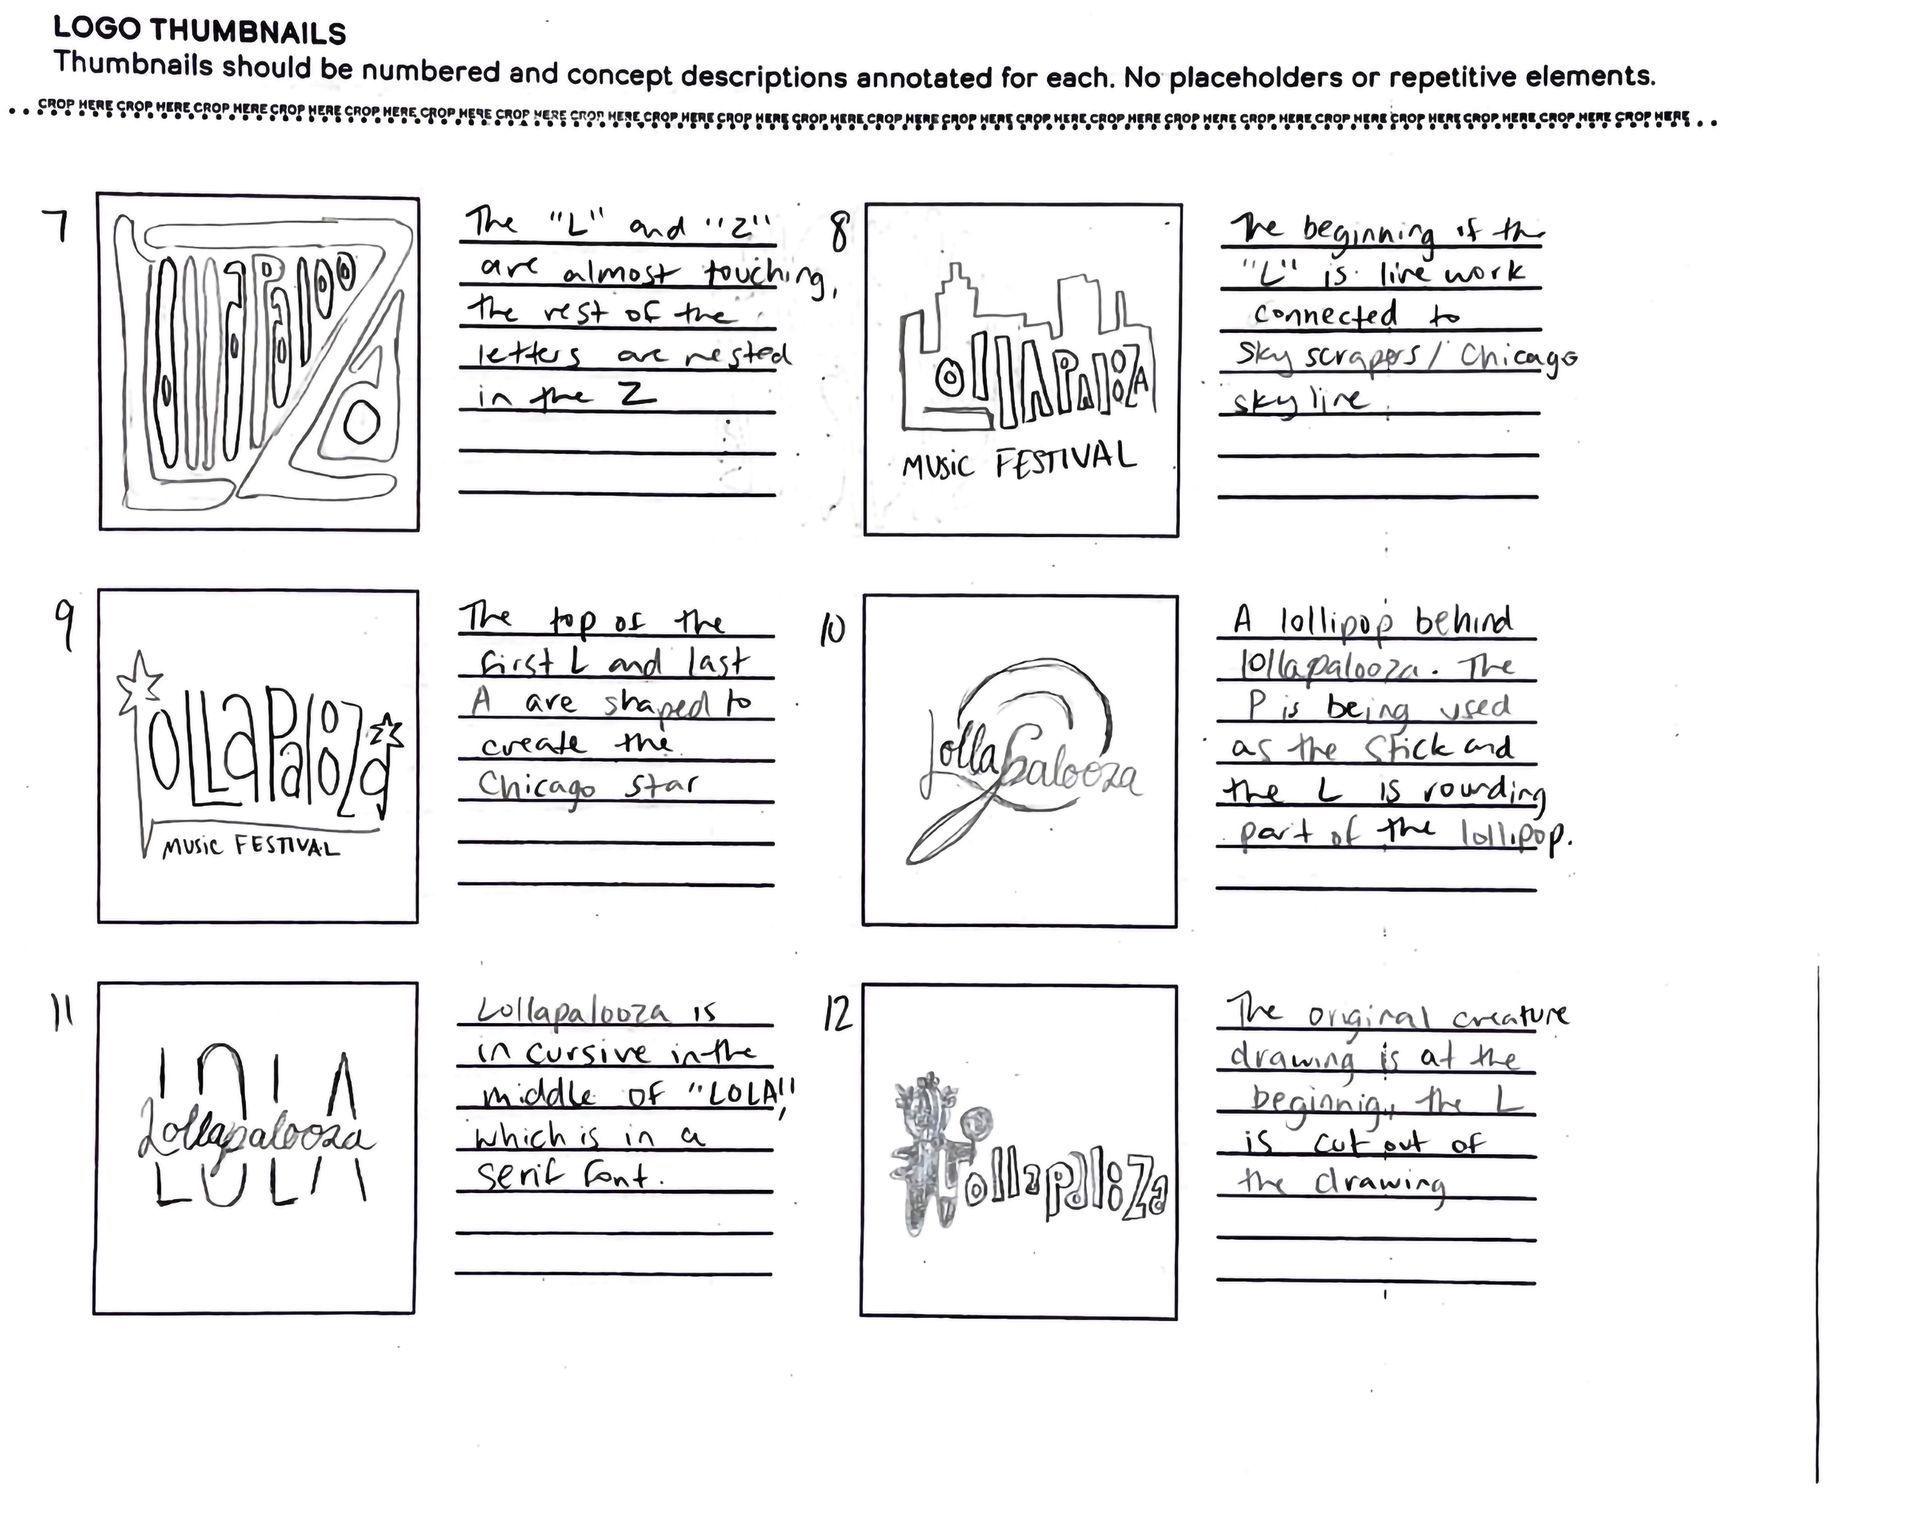 LOGO THUMBNAILS
Thumbnails should be numbered and concept descriptions annotated for each. No placeholders or repetitive elements.
CROP HERE CROP HERE CROP HERE CROP HERE CROP HERE CROP HERE CROP HERE CROP HERE CROP HERE CROP HERE CROP HERE CROP HERE CROP HERE CROP HERE CROP HERE CROP HERE CROP HERE CROP HERE CROP HERE CROP HERE CROP HERE CROP HERE
7
The "L" and "Z"
are almost touching,
the rest of the
letters are nested
in the Z
8
LOllAPAlOOZA
MUSIC FESTIVAL
The beginning of the
"L" is line work
connected to
Sky scrapers / Chicago
sky line
9
lOLLaPalOOZa
MUSIC FESTIVAL
The top of the
first L and last
A are shaped to
create the
Chicago star
10
Lollapalooza
A lollipop behind
lollapalooza. The
P is being used
as the stick and
the L is rounding
part of the lollipop.
11
LOLA
Lollapalooza
Lollapalooza is
in cursive in the
middle of "LOLA",
which is in a
serif font.
12
Lollapalooza
The original creature
drawing is at the
beginnig, the L
is cut out of
the drawing